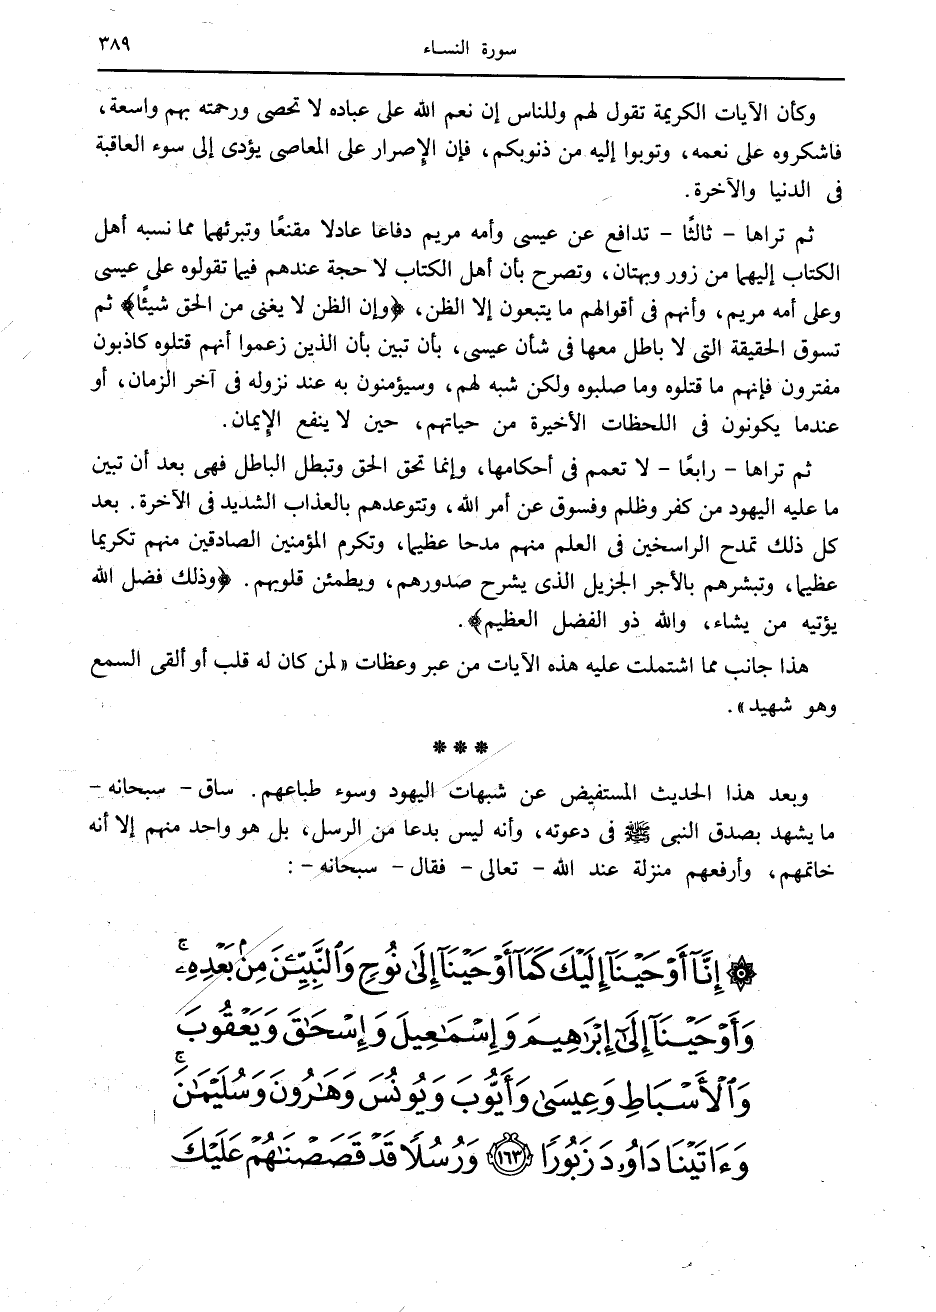 سورة النساء ٣٨٩
وكأن الآيات الكريمة تقول لهم وللناس إن نعم الله على عباده لا تحصى ورحمته بهم واسعة،
فاشكروه على نعمه، وتوبوا إليه من ذنوبكم، فإن الإصرار على المعاصى يؤدى إلى سوء العاقبة
فى الدنيا والآخرة.
ثم تراها - ثالثًا - تدافع عن عيسى وأمه مريم دفاعا عادلا مقنعًا وتبرئهما مما نسبه أهل
الكتاب إليهما من زور وبهتان، وتصرح بأن أهل الكتاب لا حجة عندهم فيما تقولوه على عيسى
وعلى أمه مريم، وأنهم فى أقوالهم ما يتبعون إلا الظن، ﴿وإن الظن لا يغنى من الحق شيئًا﴾ ثم
تسوق الحقيقة التى لا باطل معها فى شأن عيسى، بأن تبين بأن الذين زعموا أنهم قتلوه كاذبون
مفترون فإنهم ما قتلوه وما صلبوه ولكن شبه لهم، وسيؤمنون به عند نزوله فى آخر الزمان، أو
عندما يكونون فى اللحظات الأخيرة من حياتهم، حين لا ينفع الإيمان.
ثم تراها - رابعًا - لا تعمم فى أحكامها، وإنما تحق الحق وتبطل الباطل فهى بعد أن تبين
ما عليه اليهود من كفر وظلم وفسوق عن أمر الله، وتتوعدهم بالعذاب الشديد فى الآخرة. بعد
كل ذلك تمدح الراسخين فى العلم منهم مدحا عظيما، وتكرم المؤمنين الصادقين منهم تكريما
عظيما، وتبشرهم بالأجر الجزيل الذى يشرح صدورهم، ويطمئن قلوبهم. ﴿وذلك فضل الله
يؤتيه من يشاء، والله ذو الفضل العظيم﴾.
هذا جانب مما اشتملت عليه هذه الآيات من عبر وعظات «لمن كان له قلب أو ألقى السمع
وهو شهيد».
***
وبعد هذا الحديث المستفيض عن شبهات اليهود وسوء طباعهم. ساق - سبحانه -
ما يشهد بصدق النبى ﷺ فى دعوته، وأنه ليس بدعا من الرسل، بل هو واحد منهم إلا أنه
خاتمهم، وأرفعهم منزلة عند الله - تعالى - فقال - سبحانه - :
۞ إِنَّآ أَوْحَيْنَآ إِلَيْكَ كَمَآ أَوْحَيْنَآ إِلَىٰ نُوحٍ وَٱلنَّبِيِّـۧنَ مِنۢ بَعْدِهِۦ ۚ
وَأَوْحَيْنَآ إِلَىٰٓ إِبْرَٰهِيمَ وَإِسْمَـٰعِيلَ وَإِسْحَـٰقَ وَيَعْقُوبَ
وَٱلْأَسْبَاطِ وَعِيسَىٰ وَأَيُّوبَ وَيُونُسَ وَهَـٰرُونَ وَسُلَيْمَـٰنَ ۚ
وَءَاتَيْنَا دَاوُۥدَ زَبُورًا ﴿١٦٣﴾ وَرُسُلًا قَدْ قَصَصْنَـٰهُمْ عَلَيْكَ